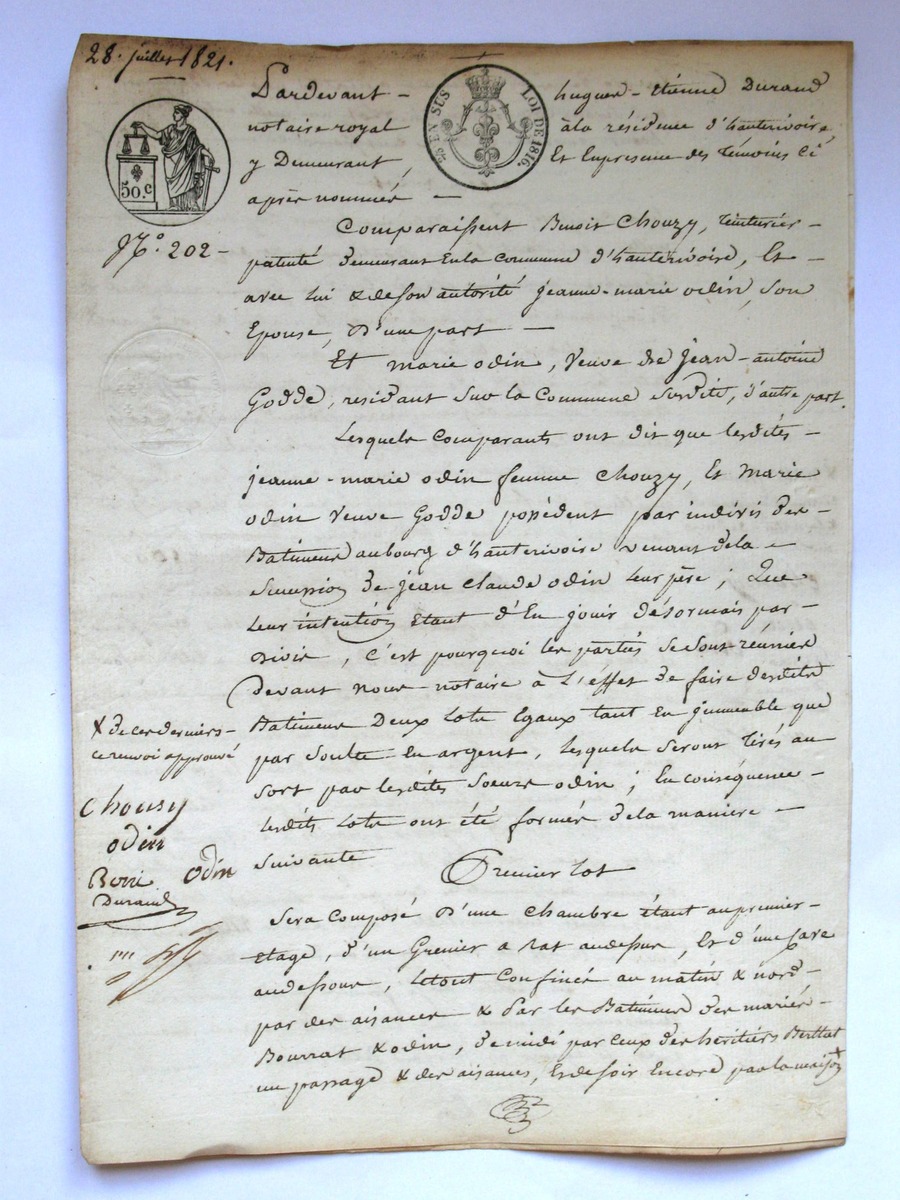 28. juillet 1821.
Pardevant - hugues-Etiénne Durand
notaire royal à la résidence d'hauterivoire,
y Demeurant, Et Enpresence des Témoins Ci
après nommés -
30.c
EN SUS LOI DE 1816.
N.º 202 -
Comparaissent Benoit Chouzy, teinturier -
patenté demeurant Enla Commune d'hauterivoire, Et -
avec lui & deson autorité jeanne-marie odin, son
Epouse, D'une part -
Et marie odin, Veuve de jean-antoine
Godde, residant sur la Commune susdite, d'autre part.
Lesquels Comparants ont dit que lesdites -
jeanne-marie odin femme Chouzy, Et Marie
odin Veuve Godde possédent par indivis des
Batimens aubourg d'hauterivoire venant dela -
Succession de jean Claude odin Leur père ; Que
Leur intention Etant d'En jouir désormais par -
Divis, C'est pourquoi les parties se sont réunies
devant nous notaire à L'éffet de faire desdits
Batimens Deux Lots Egaux tant En jmmeuble que
par soulte En argent, Lesquels seront Tirés au
sort par lesdites soeurs odin ; En conséquence -
lesdits Lots ont été formés dela maniere -
suivante
Premier lot
Sera Composé D'une Chambre étant aupremier -
Etage, d'un Grenier a rat audessus, Et d'une
audessous, letout Confiné au matin & nord -
par des aisances & par les Batimens des mariés -
Bourrat & odin, de midi par Ceux des héritiers Berthat
un passage & des aisances, Et desoir Encore par la maison x
x de ces derniers -
ce renvoi approuvé
Chouzy
odin
odin
Durand